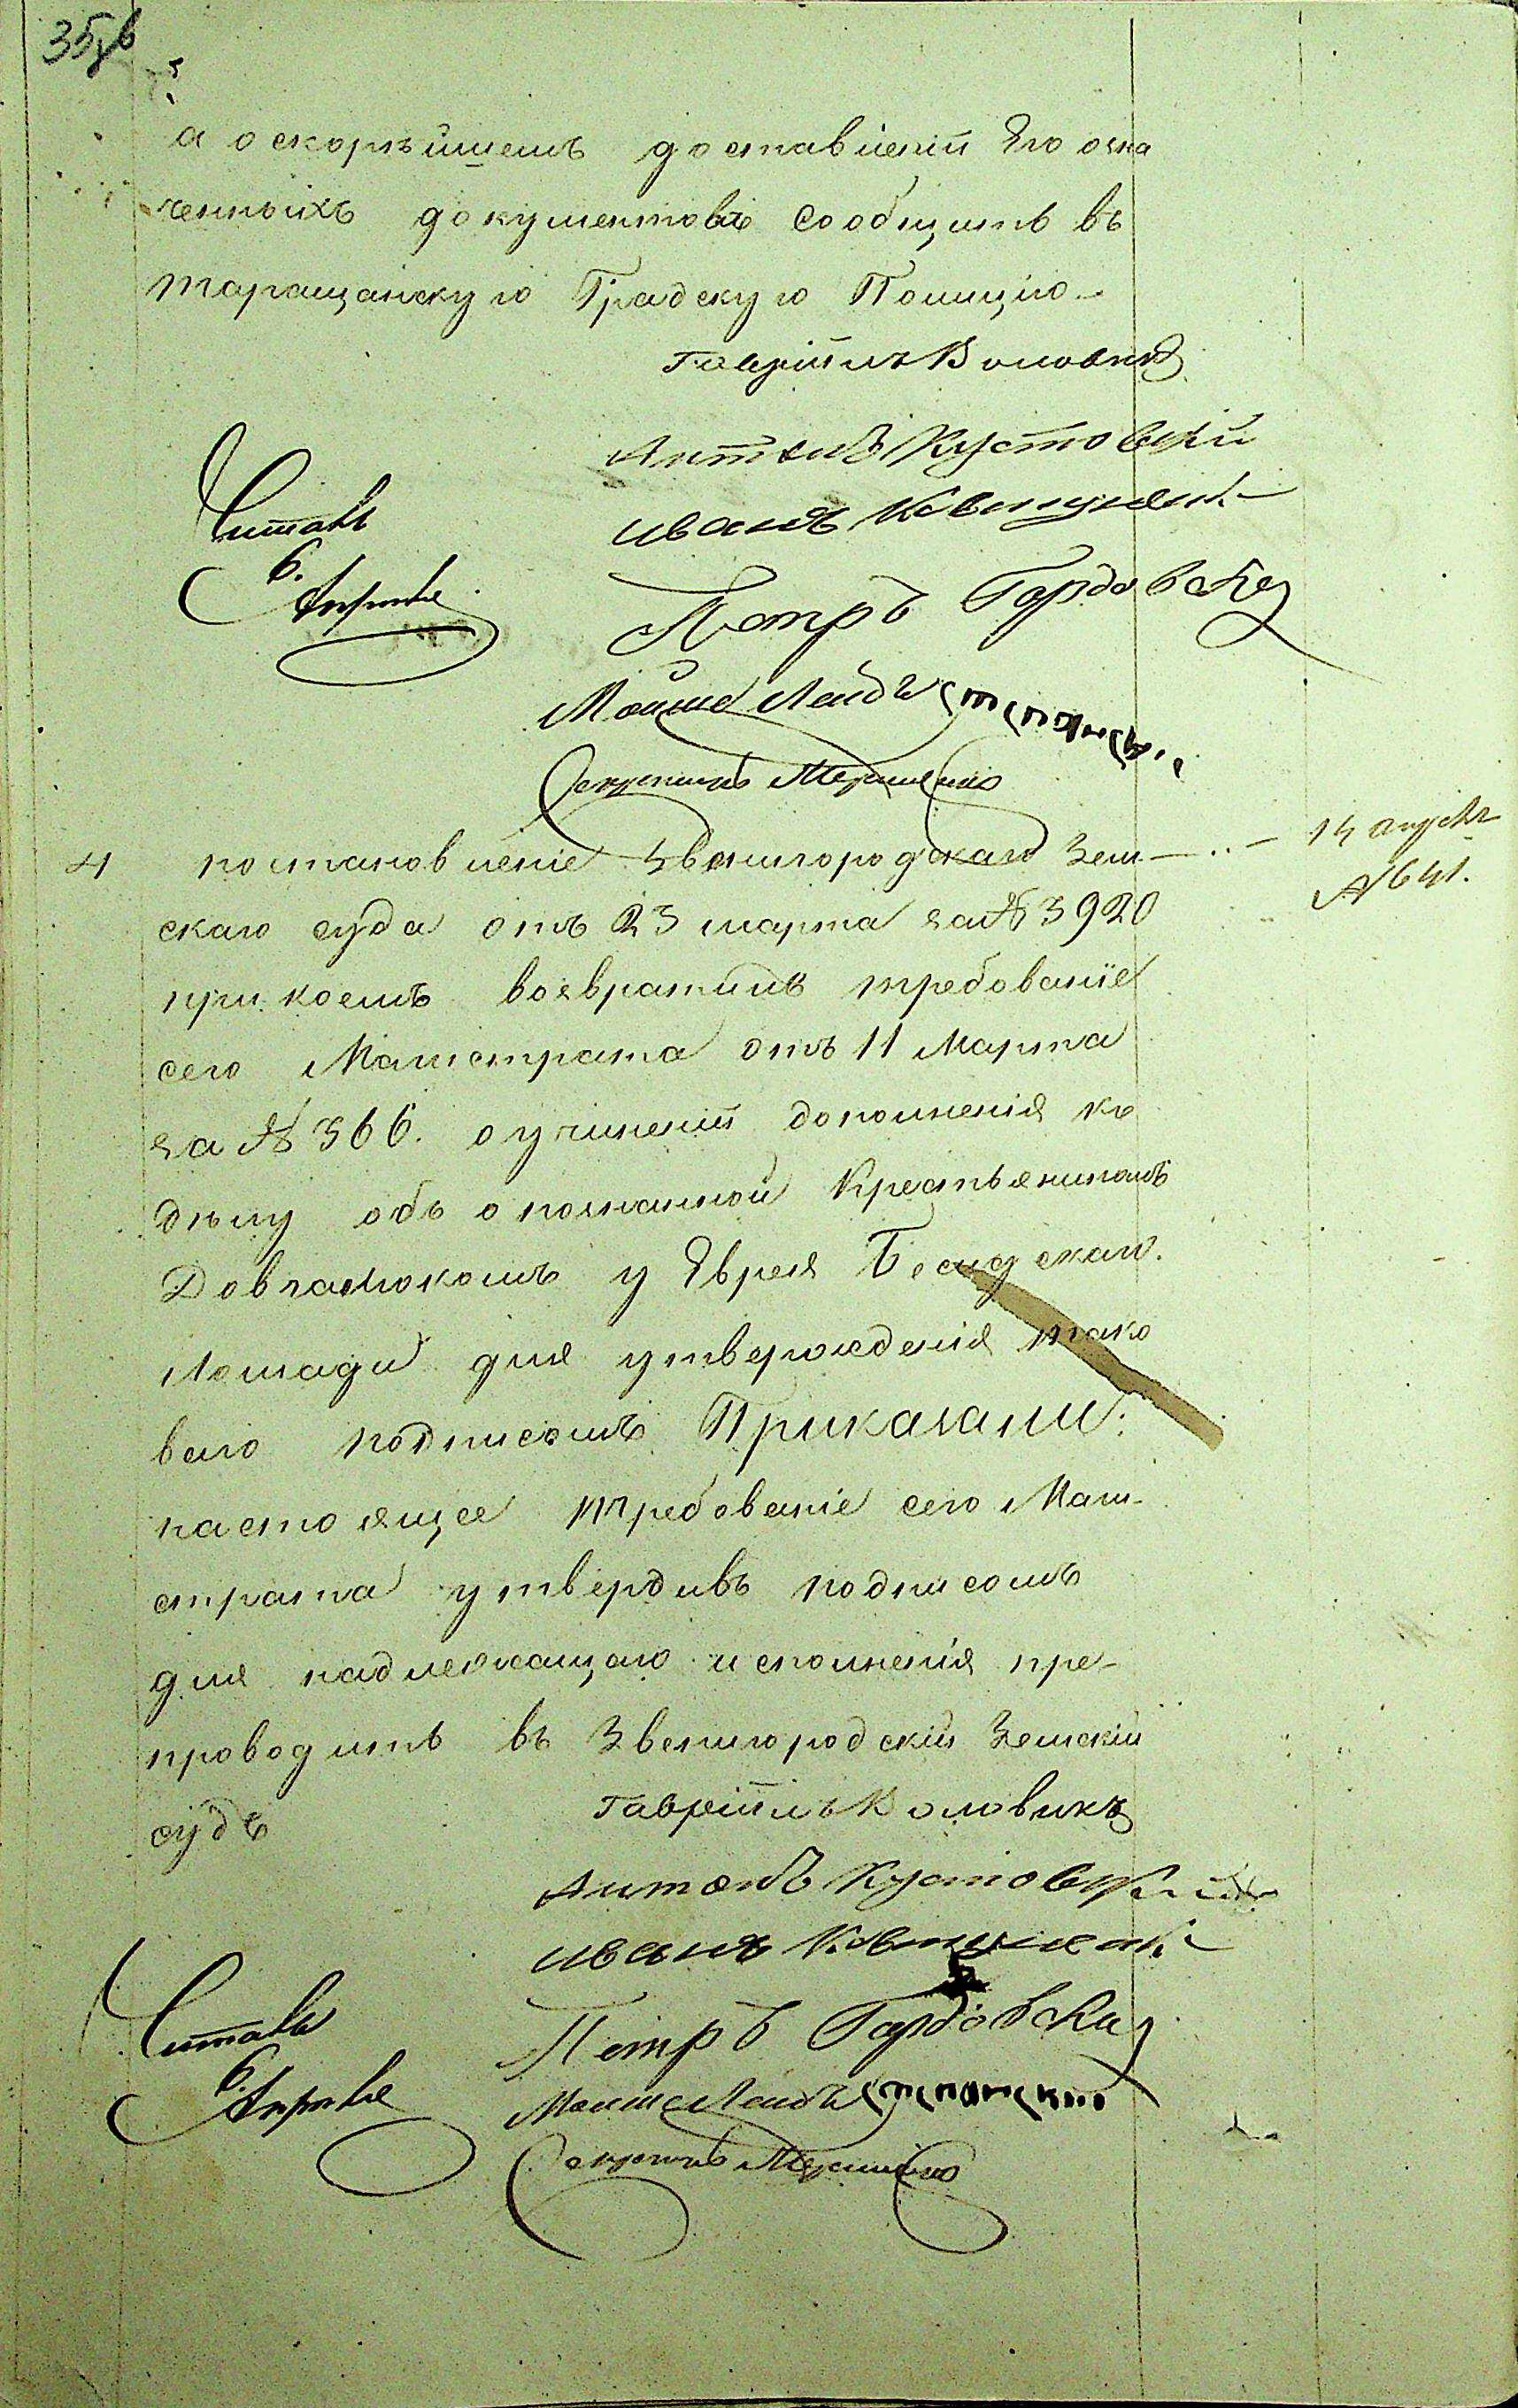 35об
а о скорѣйшемъ доставленіи Его озна
ченныхъ документовъ сообщить въ
Таращанскую Градскую Полицію
Гавріилъ Воловикъ
Антонъ Кустовскій
Иванъ
Читалъ
Петръ Гордовскій
Мошко
Секретарь
4 постановленіе Звенигородскаго Зем
14 апрѣля
№ 641.
скаго суда отъ 23 марта за № 3920
при коемъ возвратилъ требованіе
сего Магистрата отъ 11 Марта
за № 366. о учиненіи дополненія къ
дѣлу объ опознанной Крестьяниномъ
Довганюкомъ у Еврея
лошади для утвержденія тако
ваго подписомъ Приказали:
настоящее требованіе сего Маги-
страта утвердивъ подписомъ
для надлежащаго исполненія пре-
проводить въ Звенигородскій Земскій
судъ
Гавріилъ Воловикъ
Антонъ Кустовскій
Иванъ
Читалъ
Петръ Гордовскій
Мошко
Секретарь